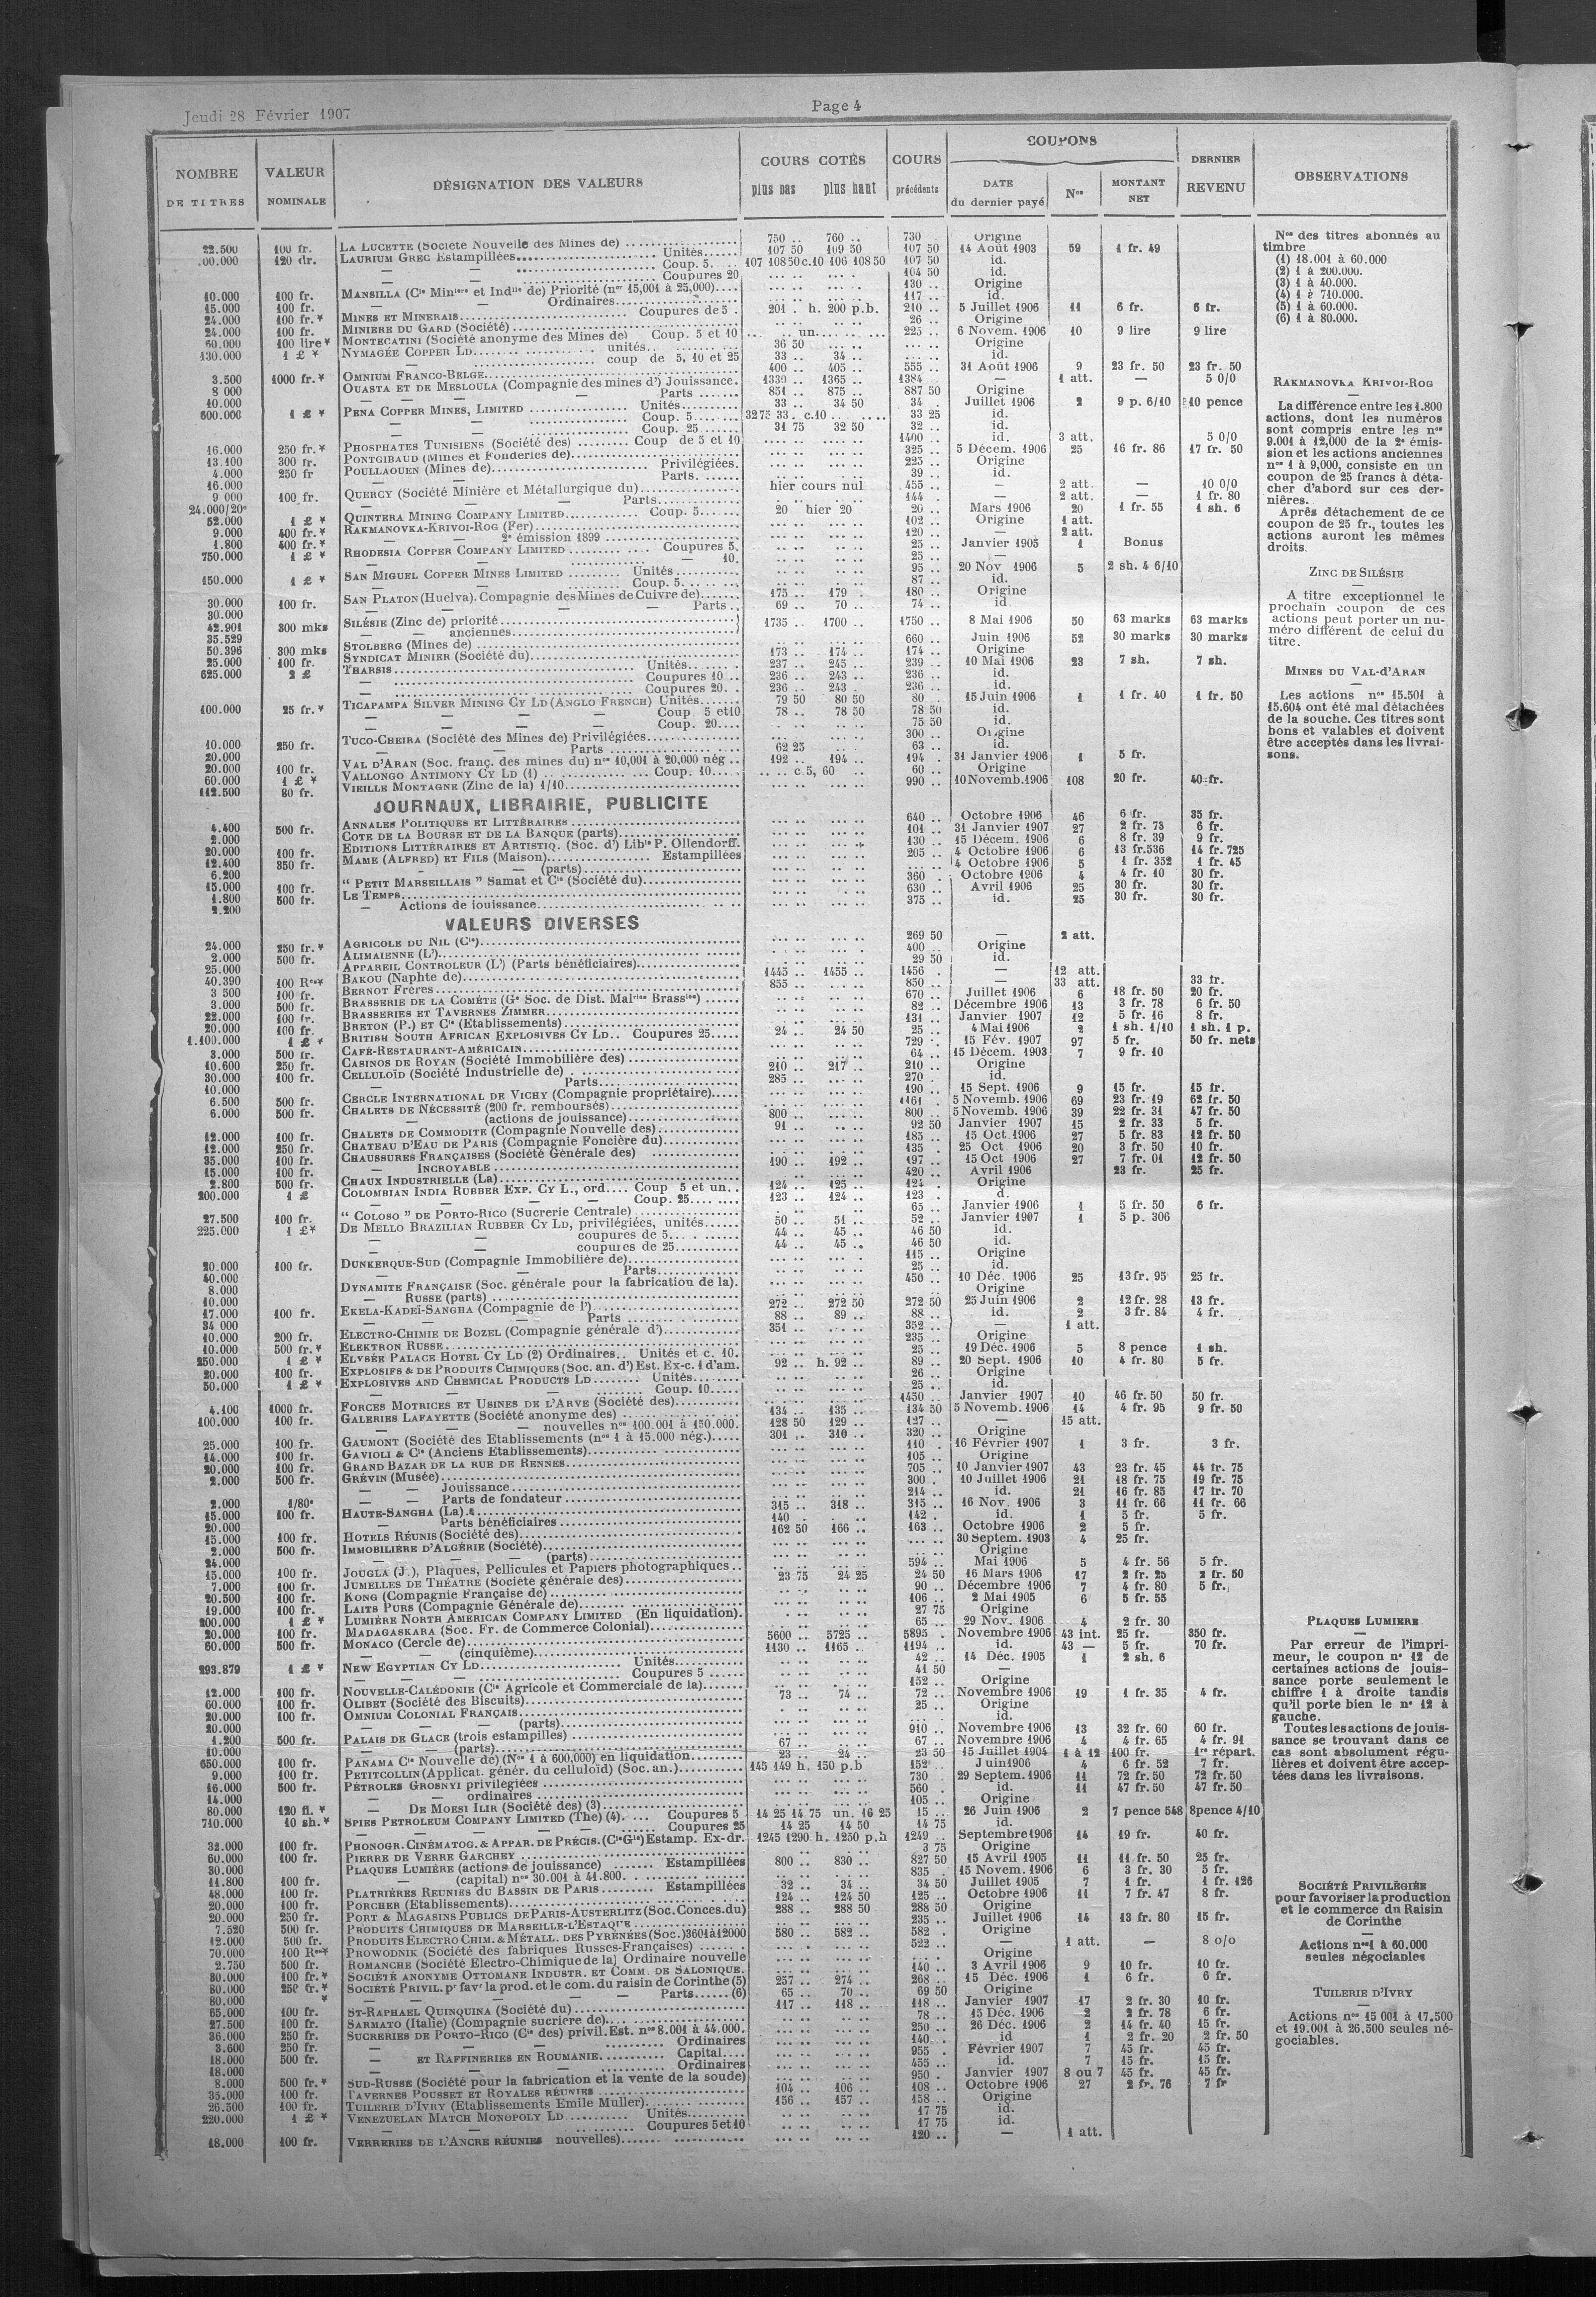 Jeudi 28 Février 1907
Page 4
NOMBRE DE TITRES
VALEUR NOMINALE
DÉSIGNATION DES VALEURS
COURS COTÉS
plus bas plus haut
COURS précédents
COUPONS
DATE du dernier payé
Nos
MONTANT NET
DERNIER REVENU
OBSERVATIONS
22.500 100 fr. LA LUCETTE (Société Nouvelle des Mines de) 750 .. 760 .. 730 Origine
120 dr. LAURIUM GREC Estampillées Unités 107 50 109 50 107 50 14 Août 1903 59 1 fr. 49
— — Coup. 5. 107 108 50 c.10 106 108 50 107 50 id.
— — Coupures 20 104 50 id.
10.000 100 fr. MANSILLA (Cie Minière et Indlle de) Priorité (nos 15,001 à 25,000) 130 .. Origine
15.000 100 fr. — Ordinaires 117 .. id.
24.000 100 fr.* MINES ET MINERAIS Coupures de 5 . 201 . h. 200 p.b. 210 .. 5 Juillet 1906 11 6 fr. 6 fr.
24.000 100 fr. MINIERE DU GARD (Société) 26 .. Origine
60.000 100 lire* MONTECATINI (Société anonyme des Mines de) Coup. 5 et 10 .. un. 225 .. 6 Novem. 1906 10 9 lire 9 lire
130.000 1 £ * NYMAGÉE COPPER LD unités 36 50 Origine
— coup de 5, 10 et 25 33 .. 34 .. id.
3.500 1000 fr.* OMNIUM FRANCO-BELGE 400 .. 405 .. 555 .. 31 Août 1906 9 23 fr. 50 23 fr. 50
8 000 OUASTA ET DE MESLOULA (Compagnie des mines d') Jouissance. 1339 .. 1365 .. 1384 — 1 att. — 5 0/0
10.000 — — Parts 851 .. 875 .. 887 50 Origine
600.000 1 £ * PENA COPPER MINES, LIMITED Unités 33 .. 34 50 34 . Juillet 1906 2 9 p. 6/10 10 pence
— — Coup. 5 3275 33 . c.10 33 25 id.
— — Coup. 25 31 75 32 50 32 .. id.
16.000 250 fr.* PHOSPHATES TUNISIENS (Société des) Coup de 5 et 10 1400 .. id. 3 att. 5 0/0
13.100 300 fr. PONTGIBAUD (Mines et Fonderies de) 325 .. 5 Décem. 1906 25 16 fr. 86 17 fr. 50
4.000 250 fr POULLAOUEN (Mines de) Privilégiées. 225 .. Origine
16.000 Parts. 39 .. id.
9 000 100 fr. QUERCY (Société Minière et Métallurgique du) hier cours nul 455 .. — 2 att. — 10 0/0
24.000/20e — — Parts 144 . — 2 att. — 1 fr. 80
52.000 1 £ * QUINTERA MINING COMPANY LIMITED Coup. 5 20 hier 20 20 .. Mars 1906 20 1 fr. 55 1 sh. 6
9.000 400 fr.* RAKMANOVKA-KRIVOI-ROG (Fer) 102 .. Origine 1 att.
1.800 400 fr.* — — 2e émission 1899 120 .. — 2 att.
750.000 1 £ * RHODESIA COPPER COMPANY LIMITED Coupures 5. 25 .. Janvier 1905 1 Bonus
— 10. 25 .. —
150.000 1 £ * SAN MIGUEL COPPER MINES LIMITED Unités 95 .. 20 Nov 1906 5 2 sh. 4 6/10
— — Coup. 5 87 .. id.
30.000 100 fr. SAN PLATON (Huelva). Compagnie des Mines de Cuivre de) 175 .. 179 . 180 .. Origine
30.000 — — — Parts 69 .. 70 .. 74 .. id
42.901 300 mks SILÉSIE (Zinc de) priorité 1735 .. 1700 .. 1750 .. 8 Mai 1906 50 63 marks 63 marks
35.529 — — anciennes
50.396 300 mks STOLBERG (Mines de) 660 .. Juin 1906 52 30 marks 30 marks
25.000 100 fr. SYNDICAT MINIER (Société du) 173 .. 174 .. 174 .. Origine
625.000 2 £ THARSIS Unités 237 .. 245 .. 239 .. 10 Mai 1906 23 7 sh. 7 sh.
— Coupures 10 236 .. 243 .. 236 .. id.
— Coupures 20. 236 .. 243 . 236 .. id.
100.000 25 fr.* TICAPAMPA SILVER MINING CY LD (ANGLO FRENCH) Unités 79 50 80 50 80 . 15 Juin 1906 1 1 fr. 40 1 fr. 50
— — — Coup. 5 et 10 78 .. 78 50 78 50 id.
— — — Coup. 20 75 50 id.
10.000 250 fr. TUCO-CHEIRA (Société des Mines de) Privilégiées 300 .. Origine
20.000 — — Parts 62 25 63 .. id.
20.000 100 fr. VAL D'ARAN (Soc. franç. des mines du) nos 10,001 à 20,000 nég 192 .. 194 .. 194 . 31 Janvier 1906 1 5 fr.
60.000 1 £ * VALLONGO ANTIMONY CY LD (1) Coup. 10 c 5, 60 60 .. Origine
112.500 80 fr. VIEILLE MONTAGNE (Zinc de la) 1/10 990 .. 10 Novemb. 1906 108 20 fr. 40 fr.
JOURNAUX, LIBRAIRIE, PUBLICITE
4.400 500 fr. ANNALES POLITIQUES ET LITTÉRAIRES 640 .. Octobre 1906 46 6 fr. 35 fr.
2.000 COTE DE LA BOURSE ET DE LA BANQUE (parts) 101 .. 31 Janvier 1907 27 2 fr. 73 6 fr.
20.000 100 fr. EDITIONS LITTÉRAIRES ET ARTISTIQ. (Soc. d') Libie P. Ollendorff. 130 .. 15 Décem. 1906 6 8 fr. 39 9 fr.
12.400 350 fr. MAME (ALFRED) ET FILS (Maison) Estampillées 205 .. 4 Octobre 1906 6 13 fr. 536 14 fr. 725
6.200 — (parts) 4 Octobre 1906 5 1 fr. 352 1 fr. 45
15.000 100 fr. “ PETIT MARSEILLAIS ” Samat et Cie (Société du) 360 . Octobre 1906 4 4 fr. 10 30 fr.
1.800 500 fr. LE TEMPS 630 .. Avril 1906 25 30 fr. 30 fr.
2.200 — Actions de jouissance 375 .. id. 25 30 fr. 30 fr.
VALEURS DIVERSES
24.000 250 fr.* AGRICOLE DU NIL (Cie) 269 50 — 2 att.
2.000 500 fr. ALIMAIENNE (L') 400 .. Origine
25.000 APPAREIL CONTROLEUR (L') (Parts bénéficiaires) 29 50 id.
40.390 100 Res* BAKOU (Naphte de) 1445 .. 1455 .. 1456 . — 12 att.
3 500 100 fr. BERNOT FRÈRES 855 .. 850 .. — 33 att. 33 fr.
3.000 500 fr. BRASSERIE DE LA COMÈTE (Ge Soc. de Dist. Malries Brassies) 670 .. Juillet 1906 6 18 fr. 50 20 fr.
22.000 100 fr. BRASSERIES ET TAVERNES ZIMMER 82 .. Décembre 1906 13 3 fr. 78 6 fr. 50
20.000 100 fr. BRETON (P.) ET Cie (Etablissements) 131 .. Janvier 1907 12 5 fr. 16 8 fr.
1.100.000 1 £ * BRITISH SOUTH AFRICAN EXPLOSIVES CY LD Coupures 25 24 .. 24 50 25 .. 4 Mai 1906 2 1 sh. 1/10 1 sh. 1 p.
3.000 500 fr. CAFÉ-RESTAURANT-AMÉRICAIN 729 . 15 Fév. 1907 97 5 fr. 50 fr. nets
10.600 250 fr. CASINOS DE ROYAN (Société Immobilière des) 64 .. 15 Décem. 1903 7 9 fr. 10
30.000 100 fr. CELLULOÏD (Société Industrielle de) 210 .. 217 .. 210 .. Origine
10.000 — Parts 285 .. 270 . id.
6.500 500 fr. CERCLE INTERNATIONAL DE VICHY (Compagnie propriétaire) 190 .. 15 Sept. 1906 9 15 fr. 15 fr.
6.000 500 fr. CHALETS DE NÉCESSITÉ (200 fr. remboursés) 1161 . 5 Novemb. 1906 69 23 fr. 19 62 fr. 50
— (actions de jouissance) 800 .. 800 . 5 Novemb. 1906 39 22 fr. 31 47 fr. 50
12.000 100 fr. CHALETS DE COMMODITE (Compagnie Nouvelle des) 91 .. 92 50 Janvier 1907 15 2 fr. 33 5 fr.
12.000 250 fr. CHATEAU D'EAU DE PARIS (Compagnie Foncière du) 185 .. 15 Oct. 1906 27 5 fr. 83 12 fr. 50
35.000 100 fr. CHAUSSURES FRANÇAISES (Société Générale des) 135 .. 25 Oct 1906 20 3 fr. 50 10 fr.
15.000 100 fr. — INCROYABLE 190 .. 192 .. 197 .. 15 Oct 1906 27 7 fr. 01 12 fr. 50
2.800 500 fr. CHAUX INDUSTRIELLE (La) 420 .. Avril 1906 23 fr. 25 fr.
200.000 1 £ COLOMBIAN INDIA RUBBER EXP. CY L., ord. Coup 5 et un. 124 .. 125 .. 124 . Origine
— — — Coup. 25 123 .. 124 .. 123 . d.
27.500 100 fr. “ COLOSO ” DE PORTO-RICO (Sucrerie Centrale) 65 .. Janvier 1906 1 5 fr. 50 6 fr.
225.000 1 £* DE MELLO BRAZILIAN RUBBER CY LD, privilégiées, unités 50 .. 51 .. 52 .. Janvier 1907 1 5 p. 306
— — coupures de 5 44 .. 45 .. 46 50 id.
— — coupures de 25 44 .. 45 .. 46 50 id.
20.000 100 fr. DUNKERQUE-SUD (Compagnie Immobilière de) 115 .. Origine
40.000 — — Parts 25 .. id.
8.000 DYNAMITE FRANÇAISE (Soc. générale pour la fabrication de la). 450 .. 10 Déc. 1906 25 13 fr. 95 25 fr.
10.000 — RUSSE (parts) Origine
17.000 100 fr. EKELA-KADEÏ-SANGHA (Compagnie de l') 272 .. 272 50 272 50 25 Juin 1906 2 12 fr. 28 13 fr.
34 000 — — — Parts 88 .. 89 .. 88 .. id. 2 3 fr. 84 4 fr.
10.000 200 fr. ELECTRO-CHIMIE DE BOZEL (Compagnie générale d') 351 .. 352 .. — 1 att.
10.000 500 fr.* ELEKTRON RUSSE 235 .. Origine
250.000 1 £ * ELYSÉE PALACE HOTEL CY LD (2) Ordinaires Unités et c. 10. 25 .. 19 Déc. 1906 5 8 pence 1 sh.
20.000 100 fr. EXPLOSIFS & DE PRODUITS CHIMIQUES (Soc. an. d') Est. Ex-c. 1 d'am. 92 .. h. 92 .. 89 .. 20 Sept. 1906 10 4 fr. 80 5 fr.
50.000 1 £ * EXPLOSIVES AND CHEMICAL PRODUCTS LD Unités 26 .. Origine
— — Coup. 10 25 .. id.
4.100 1000 fr. FORCES MOTRICES ET USINES DE L'ARVE (Société des) 1450 . Janvier 1907 10 46 fr. 50 50 fr.
100.000 100 fr. GALERIES LAFAYETTE (Société anonyme des) 134 .. 135 .. 134 50 5 Novemb. 1906 14 4 fr. 95 9 fr. 50
— — nouvelles nos 100.001 à 150.000. 128 50 129 .. 127 .. — 15 att.
25.000 100 fr. GAUMONT (Société des Etablissements (nos 1 à 15.000 nég.) 301 .. 310 .. 320 .. Origine
14.000 100 fr. GAVIOLI & Cie (Anciens Etablissements) 110 . 16 Février 1907 1 3 fr. 3 fr.
20.000 100 fr. GRAND BAZAR DE LA RUE DE RENNES 105 .. Origine
2.000 500 fr. GRÉVIN (Musée) 705 .. 10 Janvier 1907 43 23 fr. 45 44 fr. 75
— — Jouissance 300 . 10 Juillet 1906 21 18 fr. 75 19 fr. 75
2.000 1/80e — — Parts de fondateur 214 .. id. 21 16 fr. 85 17 fr. 70
15.000 100 fr. HAUTE-SANGHA (La) 315 .. 318 .. 315 .. 16 Nov. 1906 3 11 fr. 66 11 fr. 66
20.000 — Parts bénéficiaires 140 . 142 . id. 1 5 fr. 5 fr.
15.000 100 fr. HOTELS RÉUNIS (Société des) 162 50 166 .. 163 .. Octobre 1906 2 5 fr.
2.000 500 fr. IMMOBILIÈRE D'ALGÉRIE (Société) 30 Septem. 1903 4 25 fr.
24.000 — — (parts) Origine
15.000 100 fr. JOUGLA (J.), Plaques, Pellicules et Papiers photographiques 594 .. Mai 1906 5 4 fr. 56 5 fr.
7.000 100 fr. JUMELLES DE THÉATRE (Société générale des) 23 75 24 25 24 50 16 Mars 1906 17 2 fr. 25 2 fr. 50
20.500 100 fr. KONG (Compagnie Française de) 90 .. Décembre 1906 7 4 fr. 80 5 fr.
19.000 100 fr. LAITS PURS (Compagnie Générale de) 106 .. 2 Mai 1905 6 5 fr. 55
200.000 1 £ * LUMIÈRE NORTH AMERICAN COMPANY LIMITED (En liquidation). 27 75 Origine
20.000 100 fr. MADAGASKARA (Soc. Fr. de Commerce Colonial) 65 .. 29 Nov. 1906 4 2 fr. 30
60.000 500 fr. MONACO (Cercle de) 5600 .. 5725 .. 5895 . Novembre 1906 43 int. 25 fr. 350 fr.
— — (cinquième) 1130 .. 1165 .. 1194 .. id. 43 — 5 fr. 70 fr.
293.879 1 £ * NEW EGYPTIAN CY LD Unités 42 .. 14 Déc. 1905 1 2 sh. 6
— — Coupures 5 41 50 —
12.000 100 fr. NOUVELLE-CALÉDONIE (Cie Agricole et Commerciale de la) 152 .. Origine
60.000 100 fr. OLIBET (Société des Biscuits) 73 .. 74 .. 72 .. Novembre 1906 19 1 fr. 35 4 fr.
20.000 100 fr. OMNIUM COLONIAL FRANÇAIS 25 .. Origine
20.000 — — (parts) id.
1.200 500 fr. PALAIS DE GLACE (trois estampilles) 910 .. Novembre 1906 13 32 fr. 60 60 fr.
10.000 — — (parts) 67 .. 67 .. Novembre 1906 4 4 fr. 65 4 fr. 91
650.000 100 fr. PANAMA Cie Nouvelle de) (Nos 1 à 600,000) en liquidation 23 .. 24 .. 23 50 15 Juillet 1904 1 à 12 100 fr. 1re répart.
9.000 100 fr. PETITCOLLIN (Applicat. génér. du celluloïd) (Soc. an.) 145 149 h. 150 p.b 152 . Juin 1906 4 6 fr. 52 7 fr.
16.000 500 fr. PÉTROLES GROSNYI privilégiées 730 . 29 Septem. 1906 11 72 fr. 50 72 fr. 50
14.000 — — ordinaires 560 . id. 11 47 fr. 50 47 fr. 50
80.000 120 fl. * — DE MOESI ILIR (Société des) (3) 105 .. Origine
710.000 10 sh.* SPIES PETROLEUM COMPANY LIMITED (The) (4) Coupures 5 14 25 14 75 un. 16 25 15 .. 26 Juin 1906 2 7 pence 548 8 pence 4/10
— — Coupures 25 14 25 14 50 14 75 id.
32.000 100 fr. PHONOGR. CINÉMATOG. & APPAR. DE PRÉCIS. (Cie Gle) Estamp. Ex-dr. 1245 1290 h. 1250 p.h 1249 .. Septembre 1906 14 19 fr. 40 fr.
60.000 100 fr. PIERRE DE VERRE GARCHEY 3 75 Origine
30.000 PLAQUES LUMIÈRE (actions de jouissance) Estampillées 800 .. 830 .. 827 50 15 Avril 1905 11 11 fr. 50 25 fr.
11.800 100 fr. — (capital) nos 30.001 à 41.800 835 . 15 Novem. 1906 6 3 fr. 30 5 fr.
48.000 100 fr. PLATRIÈRES REUNIES DU BASSIN DE PARIS Estampillées 32 .. 34 .. 34 50 Juillet 1905 7 1 fr. 1 fr. 126
20.000 100 fr. PORCHER (Etablissements) 124 .. 124 50 125 .. Octobre 1906 11 7 fr. 47 8 fr.
20.000 250 fr. PORT & MAGASINS PUBLICS DE PARIS-AUSTERLITZ (Soc. Conces. du) 288 .. 288 50 288 50 Origine
7.520 500 fr. PRODUITS CHIMIQUES DE MARSEILLE-L'ESTAQUE 235 .. Juillet 1906 14 13 fr. 80 15 fr.
12.000 500 fr. PRODUITS ELECTRO CHIM. & MÉTALL. DES PYRÉNÉES (Soc.) 3601 à 12000 580 .. 582 .. 582 . Origine
70.000 100 Res* PROWODNIK (Société des fabriques Russes-Françaises) 522 .. — 1 att. — 8 o/o
2.750 500 fr. ROMANCHE (Société Electro-Chimique de la) Ordinaire nouvelle Origine
30.000 100 fr.* SOCIÉTÉ ANONYME OTTOMANE INDUSTR. ET COMM. DE SALONIQUE. 140 .. 3 Avril 1906 9 10 fr. 10 fr.
80.000 250 fr.* SOCIÉTÉ PRIVIL. pr favr la prod. et le com. du raisin de Corinthe (5) 257 .. 274 .. 268 .. 15 Déc. 1906 1 6 fr. 6 fr.
80.000 * — — — Parts (6) 65 .. 70 .. 69 50 Origine
65.000 100 fr. ST-RAPHAEL QUINQUINA (Société du) 117 .. 118 .. 118 .. Janvier 1907 17 2 fr. 30 10 fr.
27.500 100 fr. SARMATO (Italie) (Compagnie sucrière de) 78 .. 15 Déc. 1906 2 2 fr. 78 6 fr.
36.000 250 fr. SUCRERIES DE PORTO-RICO (Cie des) privil. Est. nos 8.001 à 44.000. 250 .. 26 Déc. 1906 2 14 fr. 40 15 fr.
3.600 250 fr. — — Ordinaires 140 .. id 1 2 fr. 20 2 fr. 50
18.000 500 fr. — ET RAFFINERIES EN ROUMANIE Capital 955 . Février 1907 7 45 fr. 45 fr.
18.000 — — Ordinaires 455 .. id. 7 15 fr. 15 fr.
8.000 500 fr.* SUD-RUSSE (Société pour la fabrication et la vente de la soude) 950 . Janvier 1907 8 ou 7 45 fr. 45 fr.
35.000 100 fr. TAVERNES POUSSET ET ROYALES RÉUNIES 104 .. 106 .. 108 .. Octobre 1906 27 2 fr. 76 7 fr
26.500 100 fr. TUILERIE D'IVRY (Etablissements Emile Muller) 156 .. 157 .. 158 .. Origine
220.000 1 £ * VENEZUELAN MATCH MONOPOLY LD Unités 17 75 id.
— — Coupures 5 et 10 17 75 id.
18.000 100 fr. VERRERIES DE L'ANCRE RÉUNIES nouvelles) 120 .. — 1 att.
Nos des titres abonnés au
timbre
(1) 18.001 à 60.000
(2) 1 à 200.000.
(3) 1 à 40.000.
(4) 1 à 710.000.
(5) 1 à 60.000.
(6) 1 à 80.000.
RAKMANOVKA KRIVOI-ROG
La différence entre les 1.800
actions, dont les numéros
sont compris entre les nos
9.001 à 12,000 de la 2e émis-
sion et les actions anciennes
nos 1 à 9,000, consiste en un
coupon de 25 francs à déta-
cher d'abord sur ces der-
nières.
Après détachement de ce
coupon de 25 fr., toutes les
actions auront les mêmes
droits.
ZINC DE SILÉSIE
A titre exceptionnel le
prochain coupon de ces
actions peut porter un nu-
méro différent de celui du
titre.
MINES DU VAL-D'ARAN
Les actions nos 15.501 à
15.604 ont été mal détachées
de la souche. Ces titres sont
bons et valables et doivent
être acceptés dans les livrai-
sons.
PLAQUES LUMIERE
Par erreur de l'impri-
meur, le coupon no 12 de
certaines actions de jouis-
sance porte seulement le
chiffre 1 à droite tandis
qu'il porte bien le no 12 à
gauche.
Toutes les actions de jouis-
sance se trouvant dans ce
cas sont absolument régu-
lières et doivent être accep-
tées dans les livraisons.
SOCIÉTÉ PRIVILÉGIÉE
pour favoriser la production
et le commerce du Raisin
de Corinthe
Actions nos 1 à 60.000
seules négociables
TUILERIE D'IVRY
Actions nos 15 001 à 17.500
et 19.001 à 26.500 seules né-
gociables.